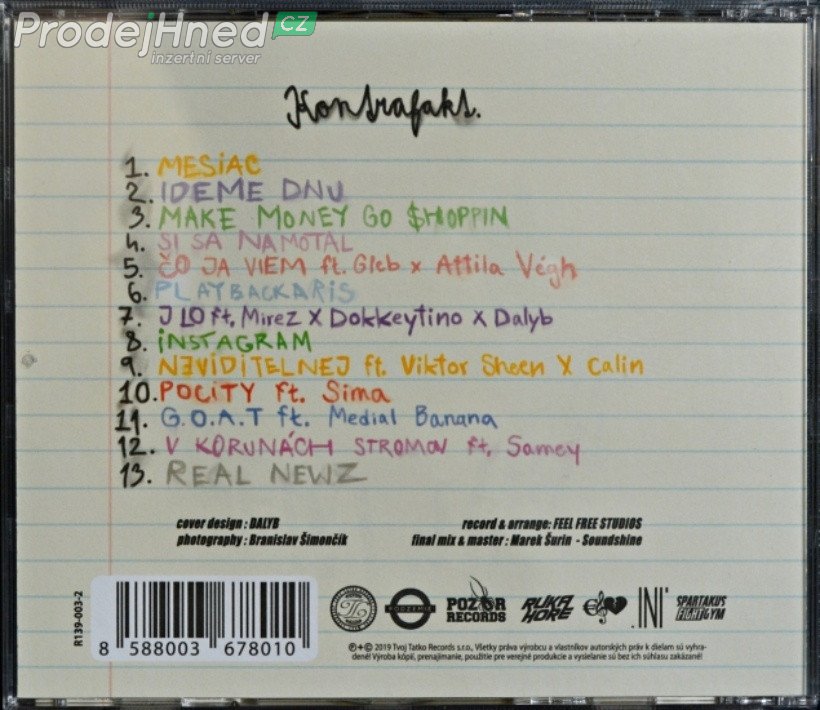 ProdejHned CZ
inzertní server
Kontrafakt.
1. MESiAC
2. IDEME DNU
3. MAKE MONEY GO $HOPPIN
4. SI SA NAMOTAL
5. ČO JA VIEM ft. Gleb x Attila Végh
6. PLAYBACKARiS
7. J LO ft. Mirez X Dokkeytino x Dalyb
8. iNSTAGRAM
9. NEViDiTELNEJ ft. Viktor Sheen X Calin
10. POCiTY ft. Sima
11. G.O.A.T ft. Medial Banana
12. V KORUNÁCH STROMOV ft. Samey
13. REAL NEWZ
cover design : DALYB
photography : Branislav Šimončík
record & arrange: FEEL FREE STUDIOS
final mix & master : Marek Šurin - Soundshine
R139-003-2
8 588003 678010
POZOR RECORDS
RUKA HORE
.INÝ
SPARTAKUS FIGHT GYM
℗+© 2019 Tvoj Tatko Records s.r.o., Všetky práva výrobcu a vlastníkov autorských práv k dielam sú vyhra-
dené! Výroba kópií, prenajímanie, použitie pre verejné produkcie a vysielanie sú bez ich súhlasu zakázané!